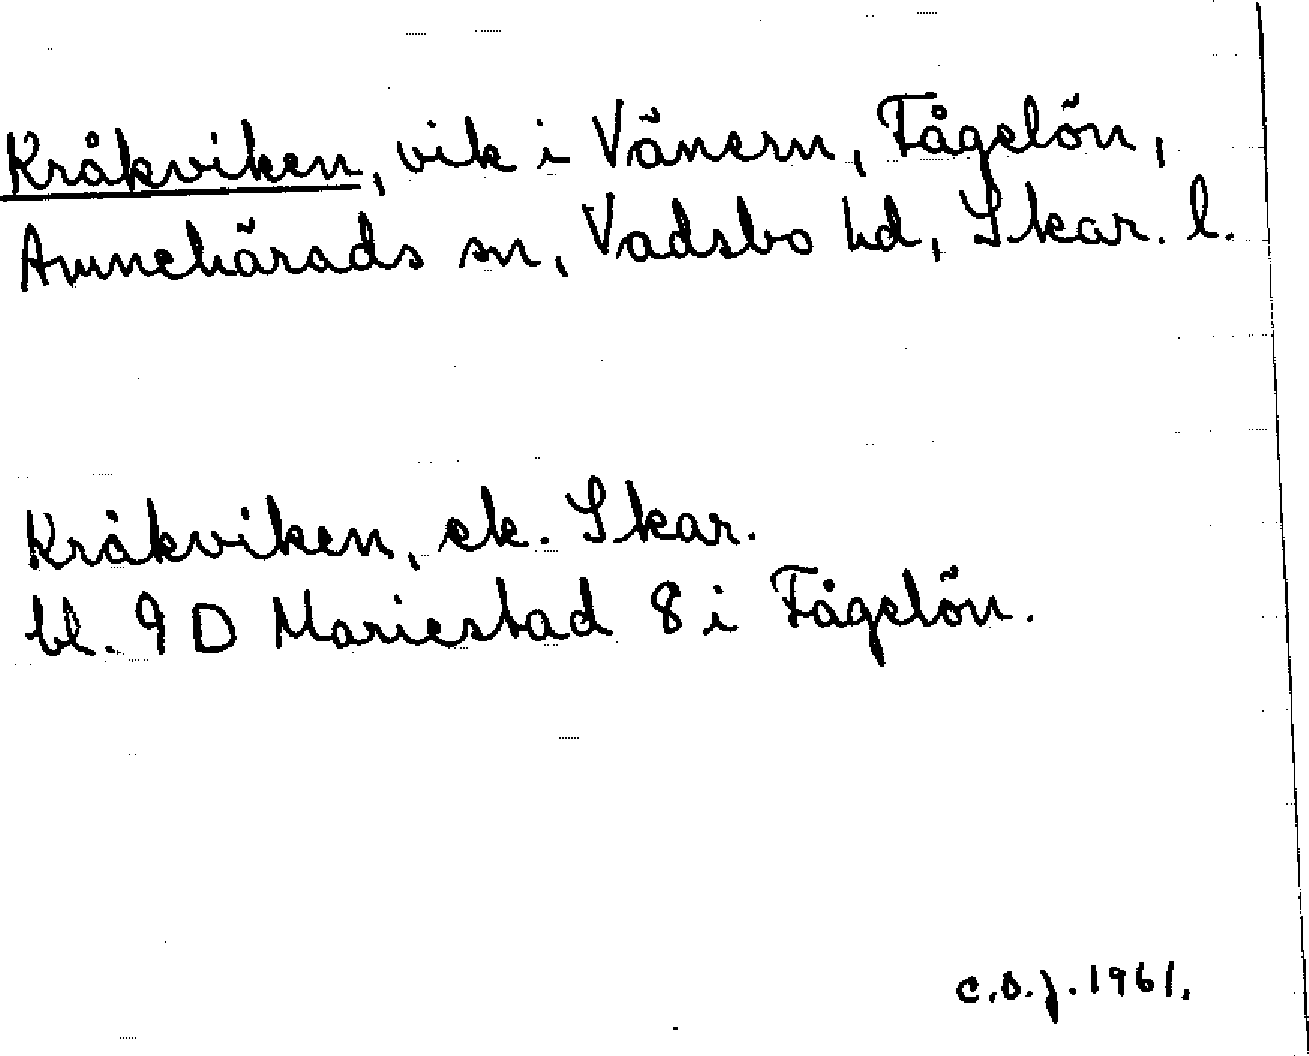 Kråkviken, vik i Vänern, Fågelön,
Amnehärads sn, Vadsbo hd, Skar. l.
Kråkviken, ek. Skar.
bl. 9 D Mariestad 8 i Fågelön.
C.O.J. 1961.